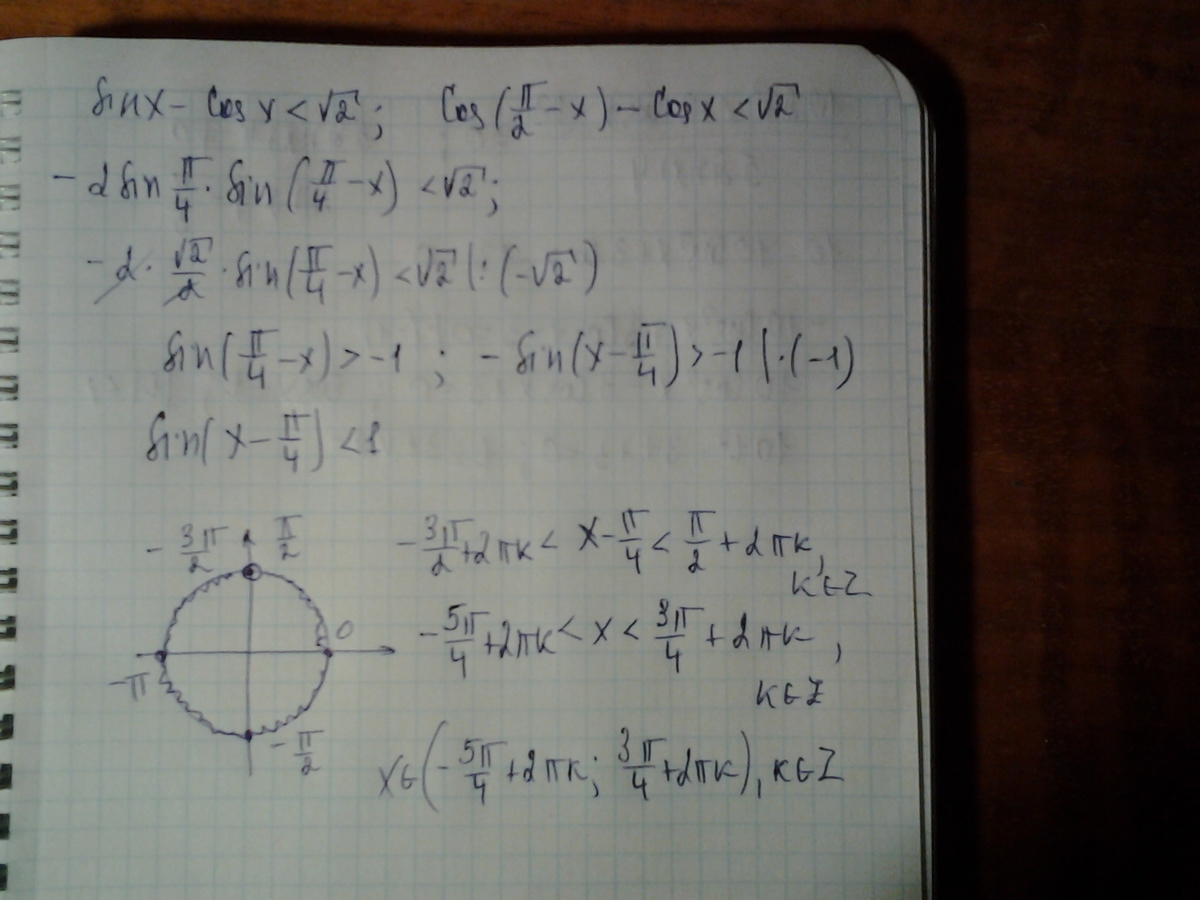 sinx - cosx < √2; cos(π/2 - x) - cosx < √2
- 2sin π/4 · sin(π/4 - x) < √2;
- 2 · √2/2 · sin(π/4 - x) < √2 |: (-√2)
sin(π/4 - x) > -1 ; - sin(x - π/4) > -1 | · (-1)
sin(x - π/4) < 1
- 3π/2 π/2
- 3π/2 + 2πk < x - π/4 < π/2 + 2πk,
k∈Z
0
- 5π/4 + 2πk < x < 3π/4 + 2πk ,
-π
k∈Z
- π/2
x∈(- 5π/4 + 2πk; 3π/4 + 2πk), k∈Z